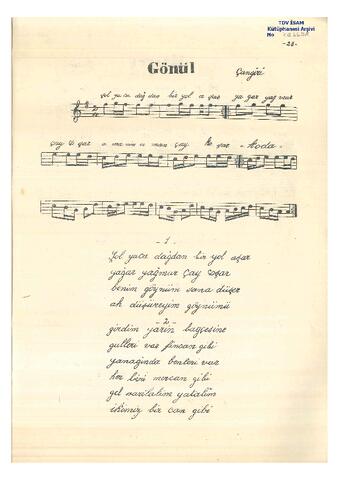 TDV İSAM
Kütüphanesi Arşivi
No
-28-
Gönül
Çangırı
yol yuca dağ dan bir yol a şar ya ğar yağ mur
çay a man a man çay
-koda-
-1-
yol yuca dağdan bir yol aşar
yağar yağmur çay aşar
benim göynüm sana düşer
ah düşüreyim göynümü
-2-
girdim yârin bağçesine
gulleri var fincan gibi
yanağında benleri var
her birisi mercan gibi
gel sarılalım yatalım
ikimiz bir can gibi